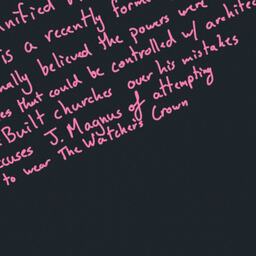 nified
is a recently form
nally believed the powers were
es that could be controlled w/ archite
Built churches over his mistakes
cuses J. Magnus of attempting
to wear The Watchers Crown